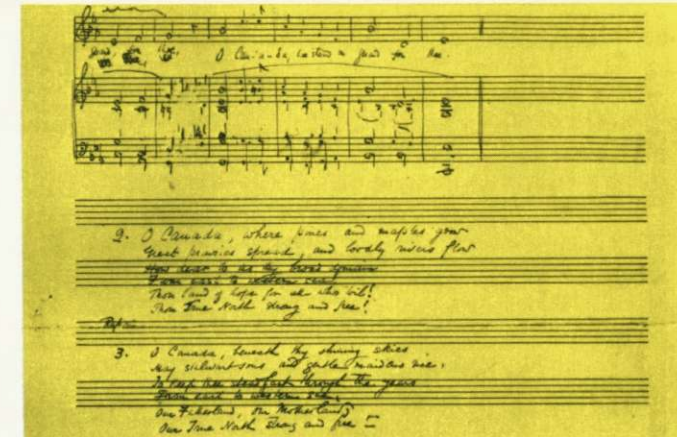 O Canada, we stand on guard for thee.
2. O Canada, where pines and maples grow
Great prairies spread, and lordly rivers flow
How dear to us thy broad domain
From east to western sea
Thou land of hope for all who toil!
Thou True North strong and free!
3. O Canada, beneath thy shining skies
May stalwart sons and gentle maidens rise,
To keep thee steadfast through the years
From east to western sea.
Our Fatherland, our Motherland!
Our True North strong and free